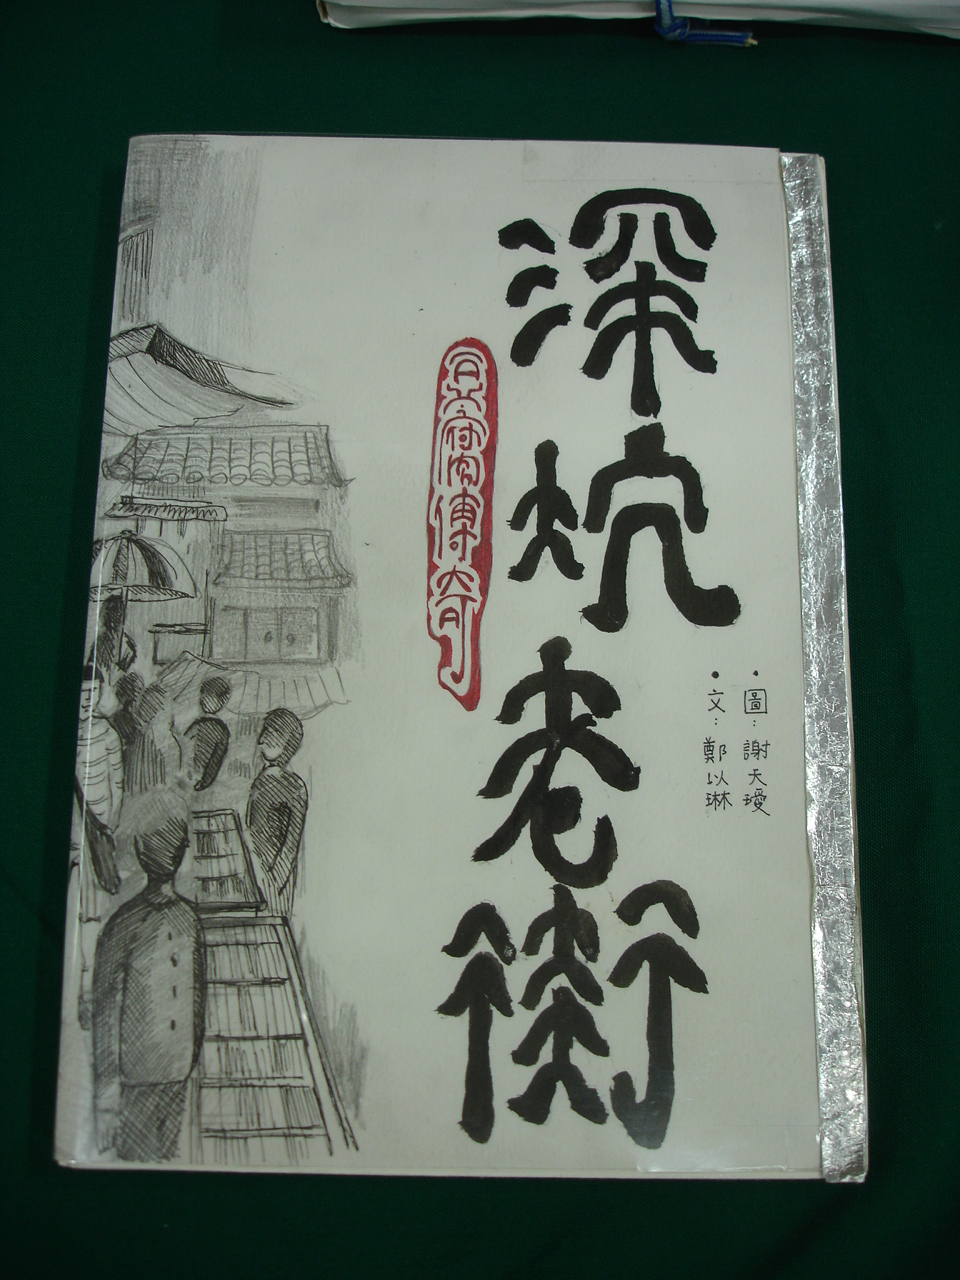 深坑老街
豆腐傳奇
・圖：謝天璦
・文：鄭以琳